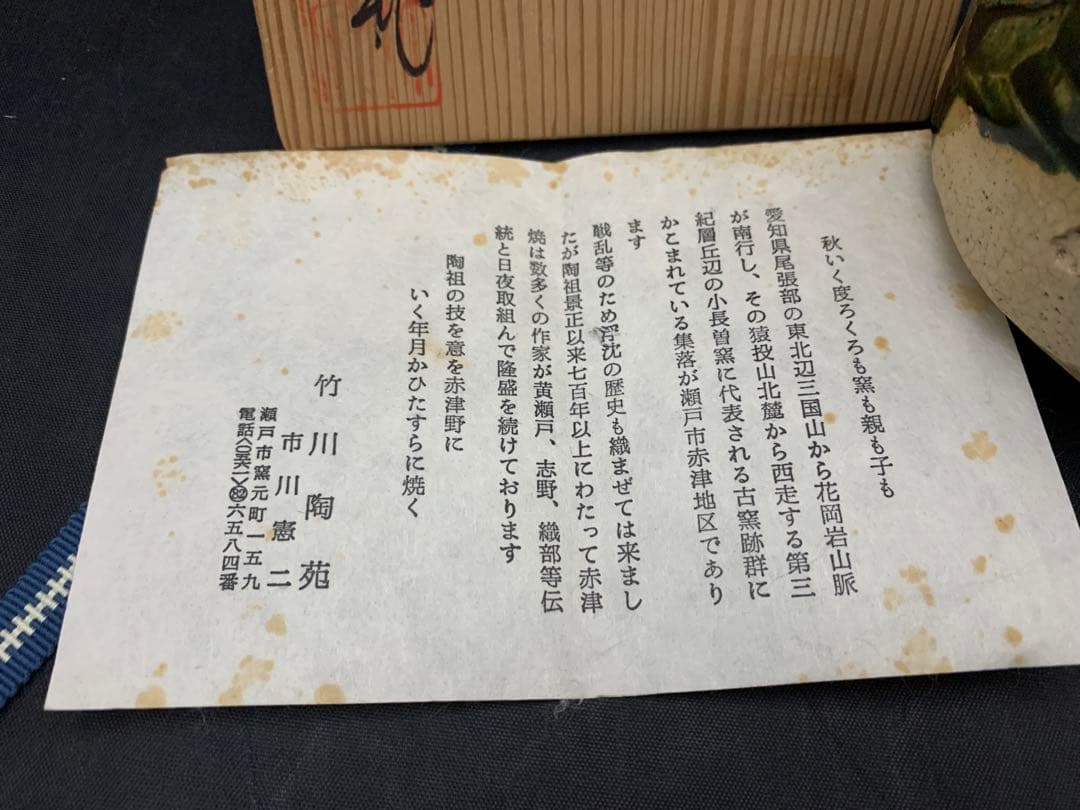 秋いく度ろくろも窯も親も子も
愛知県尾張部の東北辺三国山から花岡岩山脈
が南行し、その猿投山北麓から西走する第三
紀層丘辺の小長曽窯に代表される古窯跡群に
かこまれている集落が瀬戸市赤津地区であり
ます
戦乱等のため浮沈の歴史も織まぜては来まし
たが陶祖景正以来七百年以上にわたって赤津
焼は数多くの作家が黄瀬戸、志野、織部等伝
統と日夜取組んで隆盛を続けております
陶祖の技を意を赤津野に
いく年月かひたすらに焼く
竹川陶苑
市川憲二
瀬戸市窯元町一五九
電話〈〇五六一〉82六五八四番